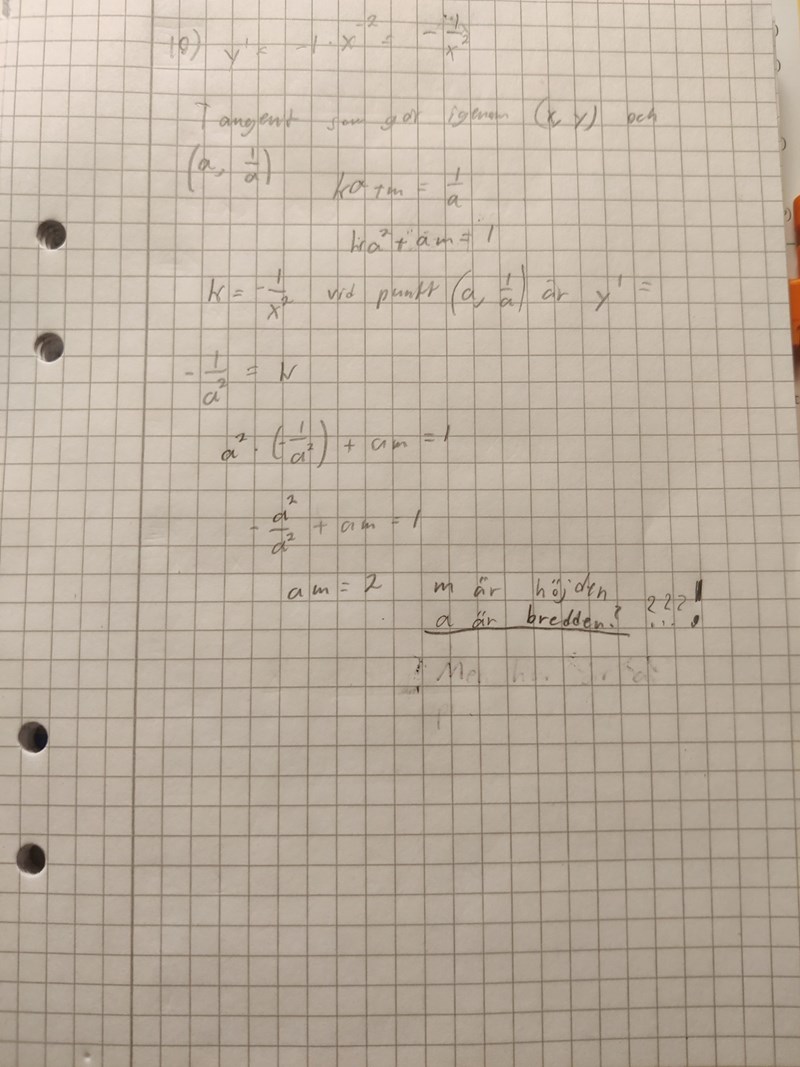 10) y' = -1 · x^-2 = -1/x^2
Tangent som går igenom (x, y) och
(a, 1/a)
ka + m = 1/a
ka^2 + am = 1
k = -1/x^2 vid punkt (a, 1/a) är y' =
-1/a^2 = k
a^2 · (-1/a^2) + am = 1
-a^2/a^2 + am = 1
am = 2 m är höjden
a är bredden? ???!